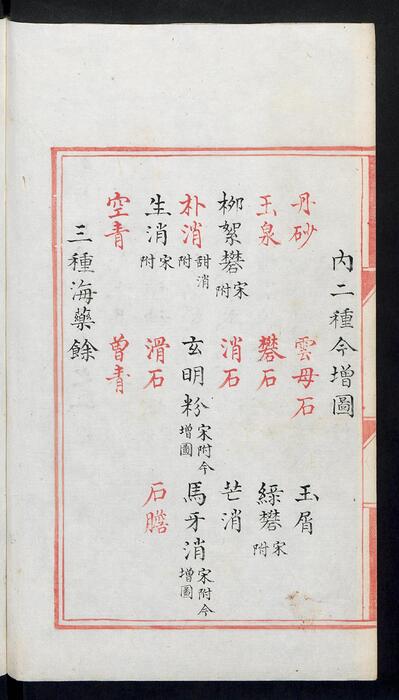 內二種今增圖
丹砂 雲母石 玉屑
玉泉 礬石 綠礬宋附
柳絮礬宋附 消石 芒消
朴消甜消附 玄明粉宋附今增圖 馬牙消宋附今增圖
生消宋附 滑石 石膽
空青 曾青
三種海藥餘